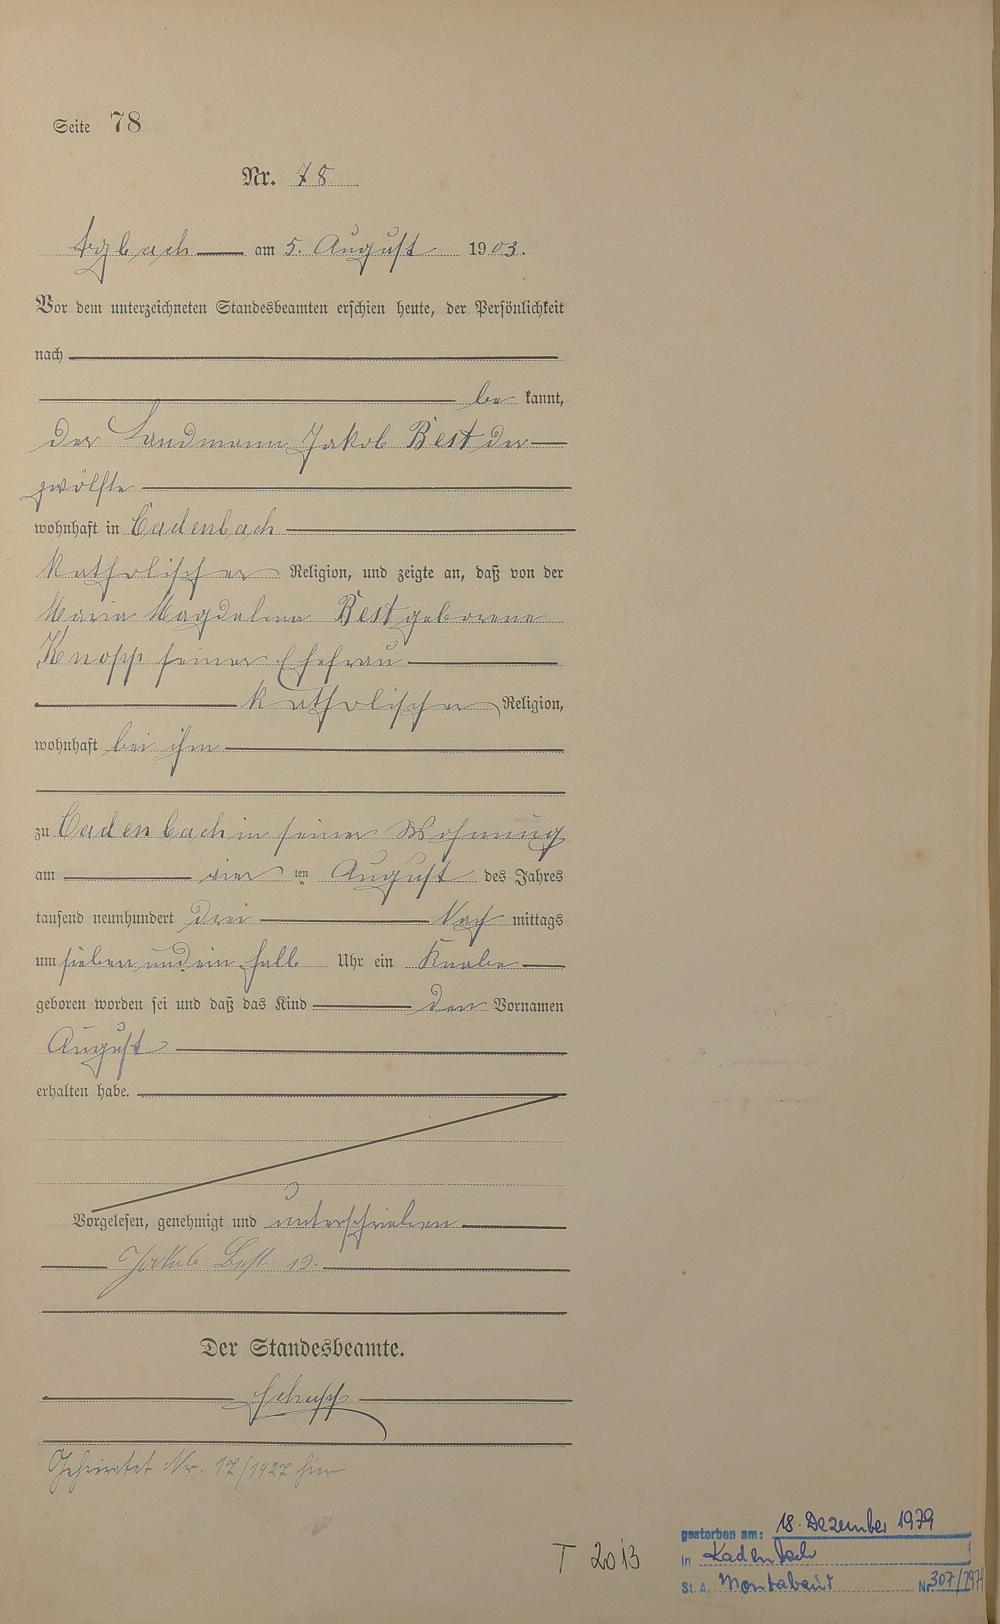 Seite 78
Nr. 78
Arzbach am 5. August 1903.
Vor dem unterzeichneten Standesbeamten erschien heute, der Persönlichkeit
nach
be kannt,
der Landmann Jakob Best der
zwölfte
wohnhaft in Cadenbach
katholischer Religion, und zeigte an, daß von der
Maria Magdalena Best geborene
Knopp seiner Ehefrau
katholischer Religion,
wohnhaft bei ihm
zu Cadenbach in seiner Wohnung
am vier ten August des Jahres
tausend neunhundert drei Nach mittags
um sieben und ein halb Uhr ein Knabe
geboren worden sei und daß das Kind den Vornamen
August
erhalten habe.
Vorgelesen, genehmigt und unterschrieben
Jakob Best. 12.
Der Standesbeamte.
Geheiratet Nr. 17/1927 hier
gestorben am: 18. Dezember 1979
T 2013 in Kadenbach
St. A. Montabaur Nr. 307/1979